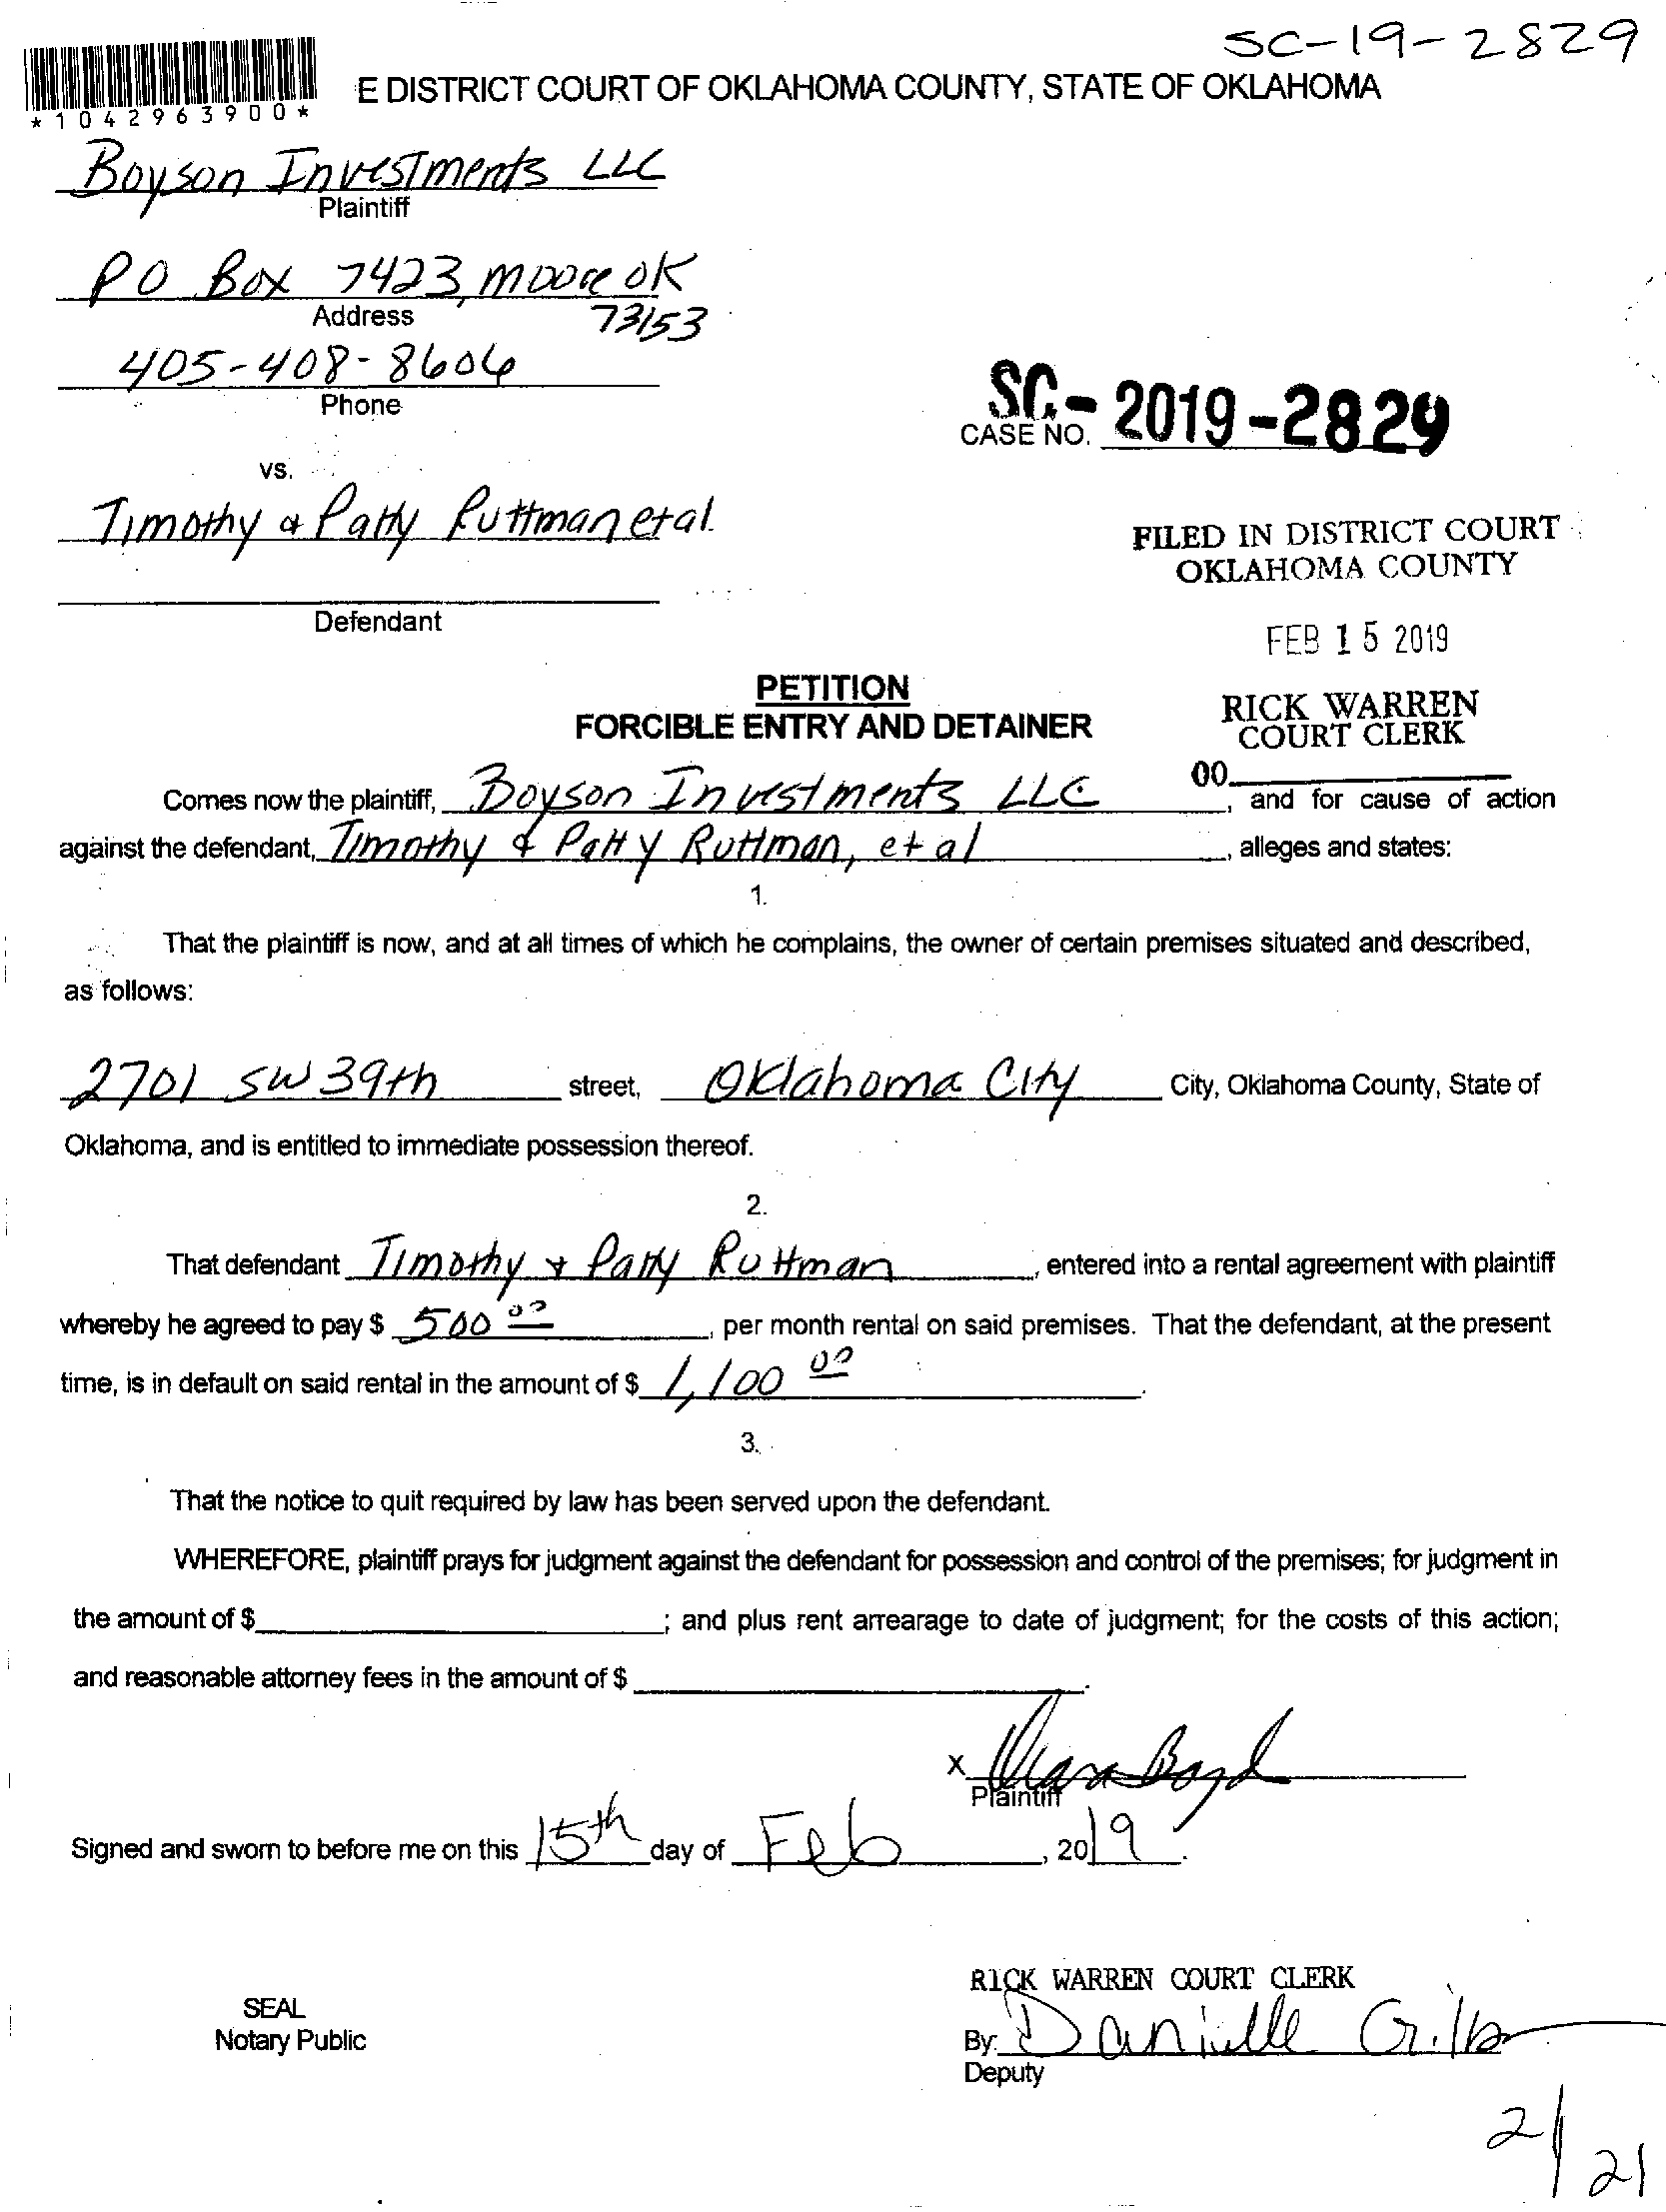 SC-19-2829
E DISTRICT COURT OF OKLAHOMA COUNTY, STATE OF OKLAHOMA
*1042963900*
Boyson Investments LLC
Plaintiff
PO Box 7423, Moore OK
73153
Address
405-408-8606
Phone
SC-2019-2829
CASE NO.
vs.
Timothy & Patty Ruttman et al.
FILED IN DISTRICT COURT
OKLAHOMA COUNTY
Defendant
FEB 15 2019
PETITION
FORCIBLE ENTRY AND DETAINER
RICK WARREN
COURT CLERK
00
Comes now the plaintiff, Boyson Investments LLC, and for cause of action
against the defendant, Timothy & Patty Ruttman, et al, alleges and states:
1.
That the plaintiff is now, and at all times of which he complains, the owner of certain premises situated and described,
as follows:
2701 SW 39th street, Oklahoma City City, Oklahoma County, State of
Oklahoma, and is entitled to immediate possession thereof.
2.
That defendant Timothy & Patty Ruttman, entered into a rental agreement with plaintiff
whereby he agreed to pay $ 500 00, per month rental on said premises. That the defendant, at the present
time, is in default on said rental in the amount of $ 1,100 00.
3.
That the notice to quit required by law has been served upon the defendant.
WHEREFORE, plaintiff prays for judgment against the defendant for possession and control of the premises; for judgment in
the amount of $ ; and plus rent arrearage to date of judgment; for the costs of this action;
and reasonable attorney fees in the amount of $ .
X Boyd
Plaintiff
Signed and sworn to before me on this 15th day of Feb, 2019.
RICK WARREN COURT CLERK
SEAL
Notary Public
By: Danielle
Deputy
2/21